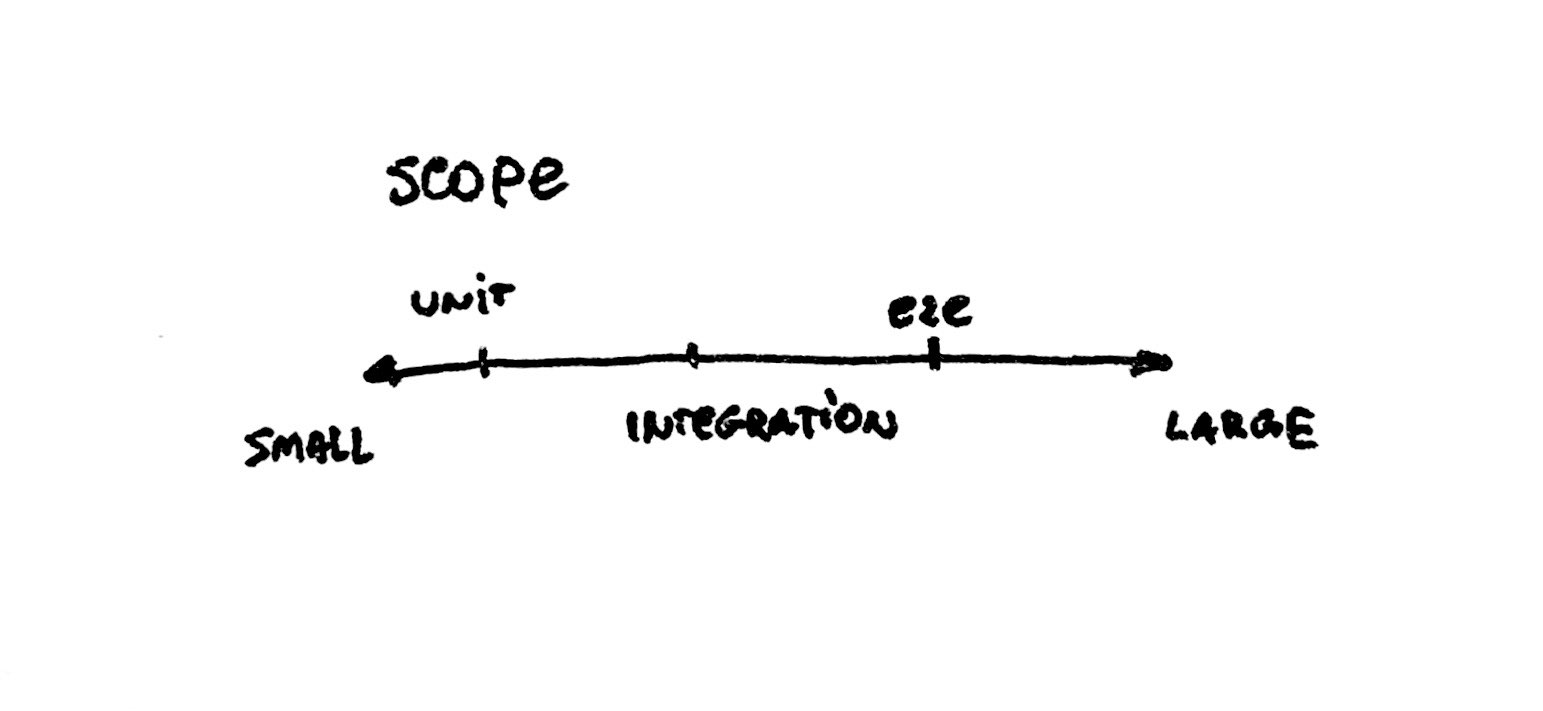 SCOPE
UNIT
e2e
SMALL
INTEGRATION
LARGE